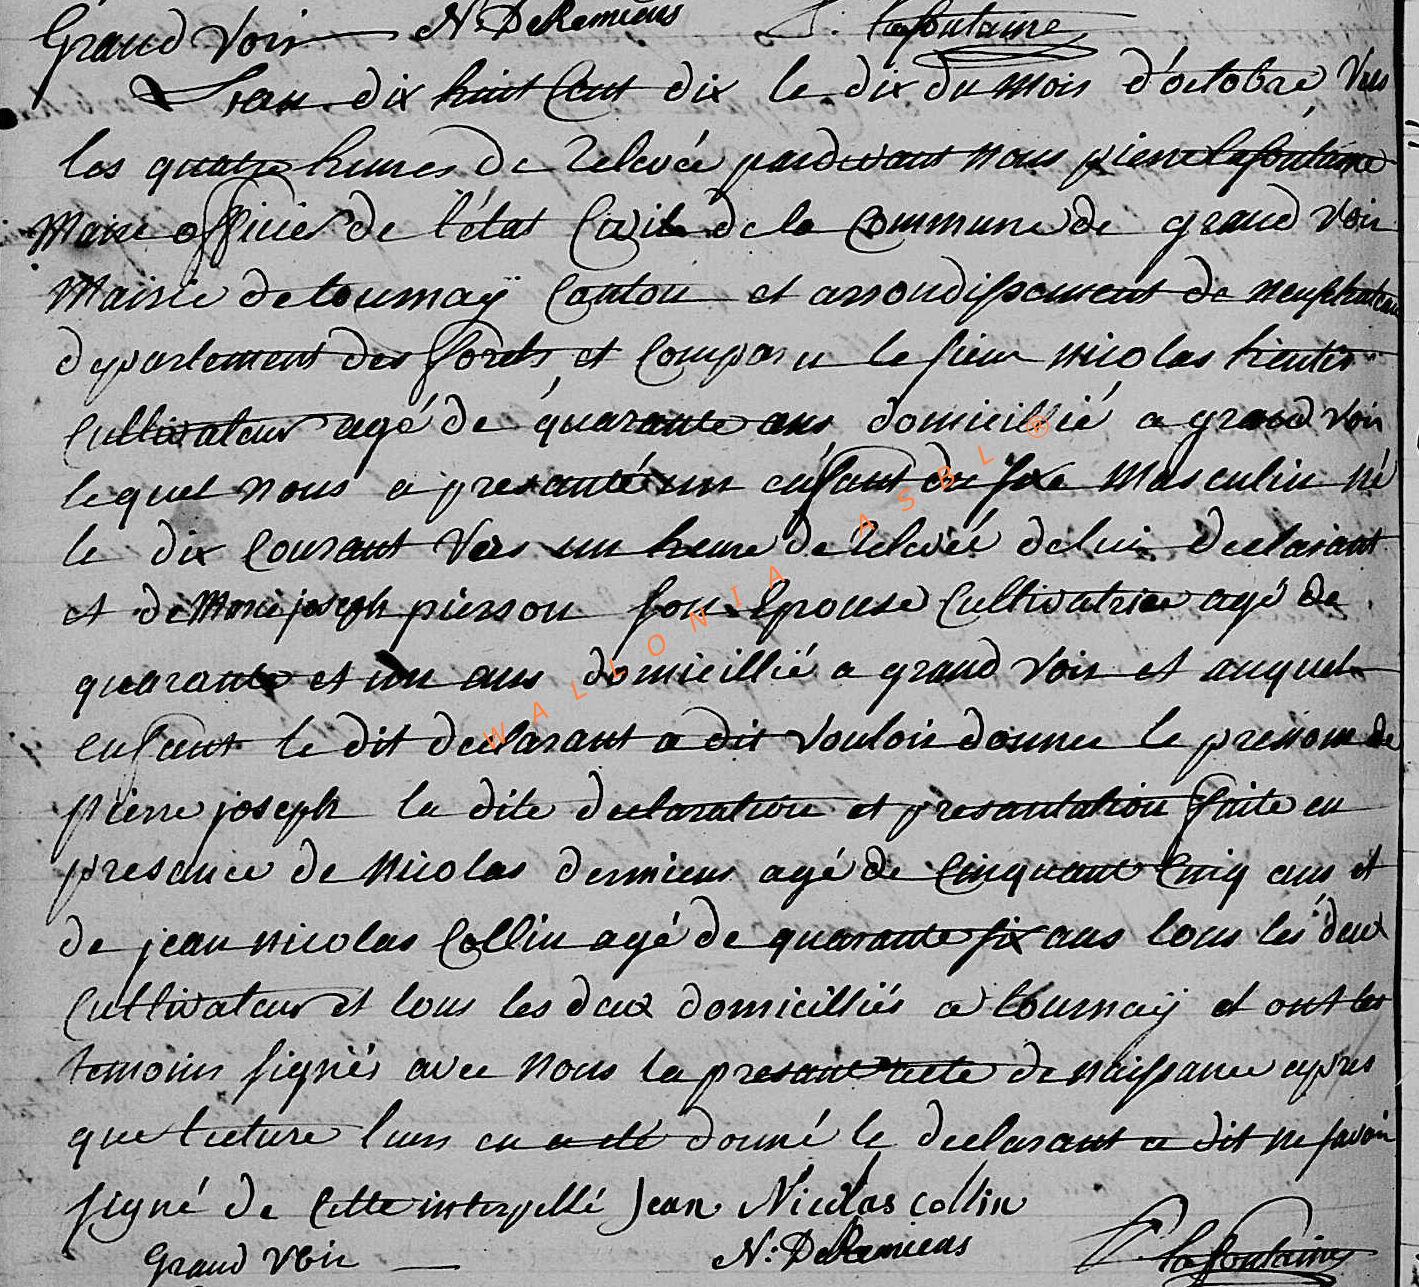 Grand Voir N. DeRemiens P. Lafontaine
L'an dix huit Cent dix le dix du mois d'octobre Vers
les quatre heures de Relevée pardevant nous pierre lafontaine
Maire officier de l'état Civil de la Commune de grand Voir
Mairie de tournaÿ Canton et arrondissement de neufchateau
departement des forets et Comparu le sieur nicolas
Cultivateur agé de quarante ans domicillié a grand Voir
lequel nous a presanté un enfant du sexe Masculin né
le dix Courant Vers un heure de Relevée de lui declarant
et de Marie joseph pierson son Epouse Cultivatrice agé de
quarante et un ans domicillié a grand Voir et auquel
enfant le dit declarant a dit Vouloir donner le prenom de
pierre joseph la dite declaration et presantation faite en
presance de Nicolas demiens agé de Cinquant Cinq ans et
de jean nicolas Collin agé de quarante six ans tous les deux
Cultivateur et tous les deux domicilliés a tournaÿ et ont les
temoins signés avec nous la presant acte de naissance apres
que lecture leurs en a été donné le declarant a dit ne savoir
signé de Cette interpellé Jean Nicolas collin
Grand Voir N: DeRemiens P. lafontaine
WALLONIA ASBL ®